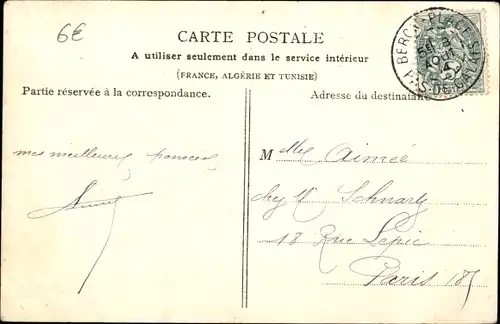 6€
CARTE POSTALE
A utiliser seulement dans le service intérieur
(FRANCE, ALGÉRIE ET TUNISIE)
Partie réservée à la correspondance.
Adresse du destinataire
BERCK-PLAGE
AOUT
PAS-DE-CALAIS
mes meilleures pensées
Mlle Aimée
chez Mr Schwartz
18 Rue Lepic
Paris 18e